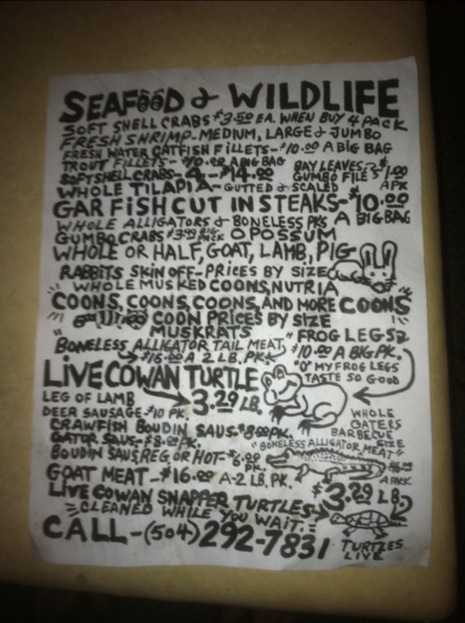 SEAFOOD & WILDLIFE
SOFT SHELL CRABS $3.50 EA. WHEN BUY 4 PACK
FRESH SHRIMP-MEDIUM, LARGE & JUMBO
FRESH WATER CATFISH FILLETS-$10.00 A BIG BAG
TROUT FILLETS-$10.00 A BIG BAG
BAY LEAVES-$1.00
SOFTSHELL CRABS-4-$14.00
GUMBO FILE $1.00 A PK
WHOLE TILAPIA-GUTTED & SCALED
GAR FISH CUT IN STEAKS-$10.00 A BIG BAG
WHOLE ALLIGATORS & BONELESS PKS
GUMBO CRABS $3.99 BIG PACK OPOSSUM
WHOLE OR HALF, GOAT, LAMB, PIG
RABBITS SKIN OFF-PRICES BY SIZE
WHOLE MUSKED COONS, NUTRIA
COONS, COONS, COONS, AND MORE COONS
COON PRICES BY SIZE
MUSKRATS
"BONELESS ALLIGATOR TAIL MEAT,
$16.00 A 2 LB. PK.
"FROG LEGS
$10.00 A BIG PK.
"O" MY FROG LEGS
TASTE SO GOOD
LIVE COWAN TURTLE
3.29 LB.
LEG OF LAMB
DEER SAUSAGE-$10 PK.
CRAWFISH BOUDIN SAUS.$8.00 PK.
GATOR SAUS-$8.00 PK.
BOUDIN SAUS, REG. OR HOT-$6.00 PK.
WHOLE
GATERS
BARBECUE
SIZE
"BONELESS ALLIGATOR MEAT"
$16.00
A PACK
GOAT MEAT-$16.00 A-2 LB. PK.
LIVE COWAN SNAPPER TURTLES $3.29 LB.
CLEANED WHILE YOU WAIT.
CALL-(504) 292-7831
TURTLES
LIVE